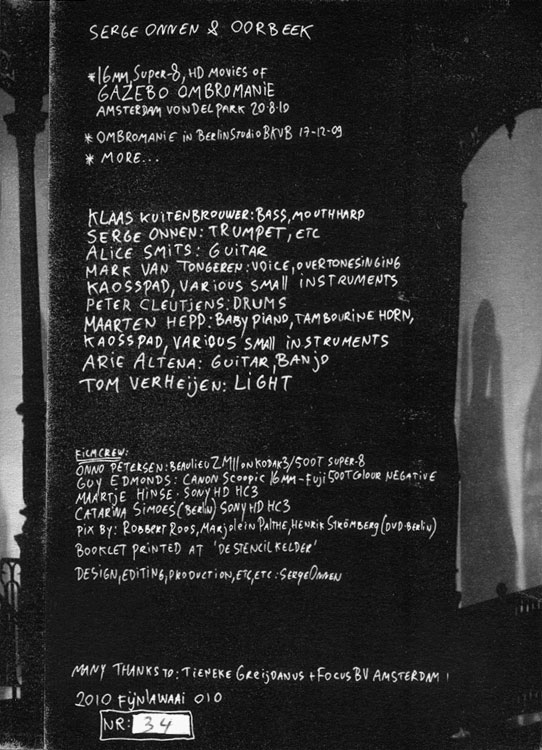 SERGE ONNEN & OORBEEK
*16MM, SUPER-8, HD MOVIES OF
GAZEBO OMBROMANIE
AMSTERDAM VONDELPARK 20·8·10
* OMBROMANIE in BERLIN STUDIO BKVB 17-12-09
* MORE...
KLAAS KUITENBROUWER: BASS, MOUTHHARP
SERGE ONNEN: TRUMPET, ETC
ALICE SMITS: GUITAR
MARK VAN TONGEREN: VOICE, OVERTONESINGING
KAOSSPAD, VARIOUS SMALL INSTRUMENTS
PETER CLEUTJENS: DRUMS
MAARTEN HEPP: BABY PIANO, TAMBOURINE HORN,
KAOSSPAD, VARIOUS SMALL INSTRUMENTS
ARIE ALTENA: GUITAR, BANJO
TOM VERHEIJEN: LIGHT
FILMCREW:
ONNO PETERSEN: BEAULIEU ZM11 ON KODAK3/500T SUPER-8
GUY EDMONDS: CANON SCOOPIC 16MM - FUJI 500T COLOUR NEGATIVE
MAARTJE HINSE · SONY HD HC3
CATARINA SIMOES (BERLIN) SONY HD HC3
PIX BY: ROBBERT ROOS, MARJOLEIN PALTHE, HENRIK STRÖMBERG (DVD·BERLIN)
BOOKLET PRINTED AT 'DE STENCILKELDER'
DESIGN, EDITING, PRODUCTION, ETC, ETC: SERGE ONNEN
MANY THANKS TO: TIENEKE GREIJDANUS + FOCUS BV AMSTERDAM !
2010 FIJNLAWAAI 010
NR: 34